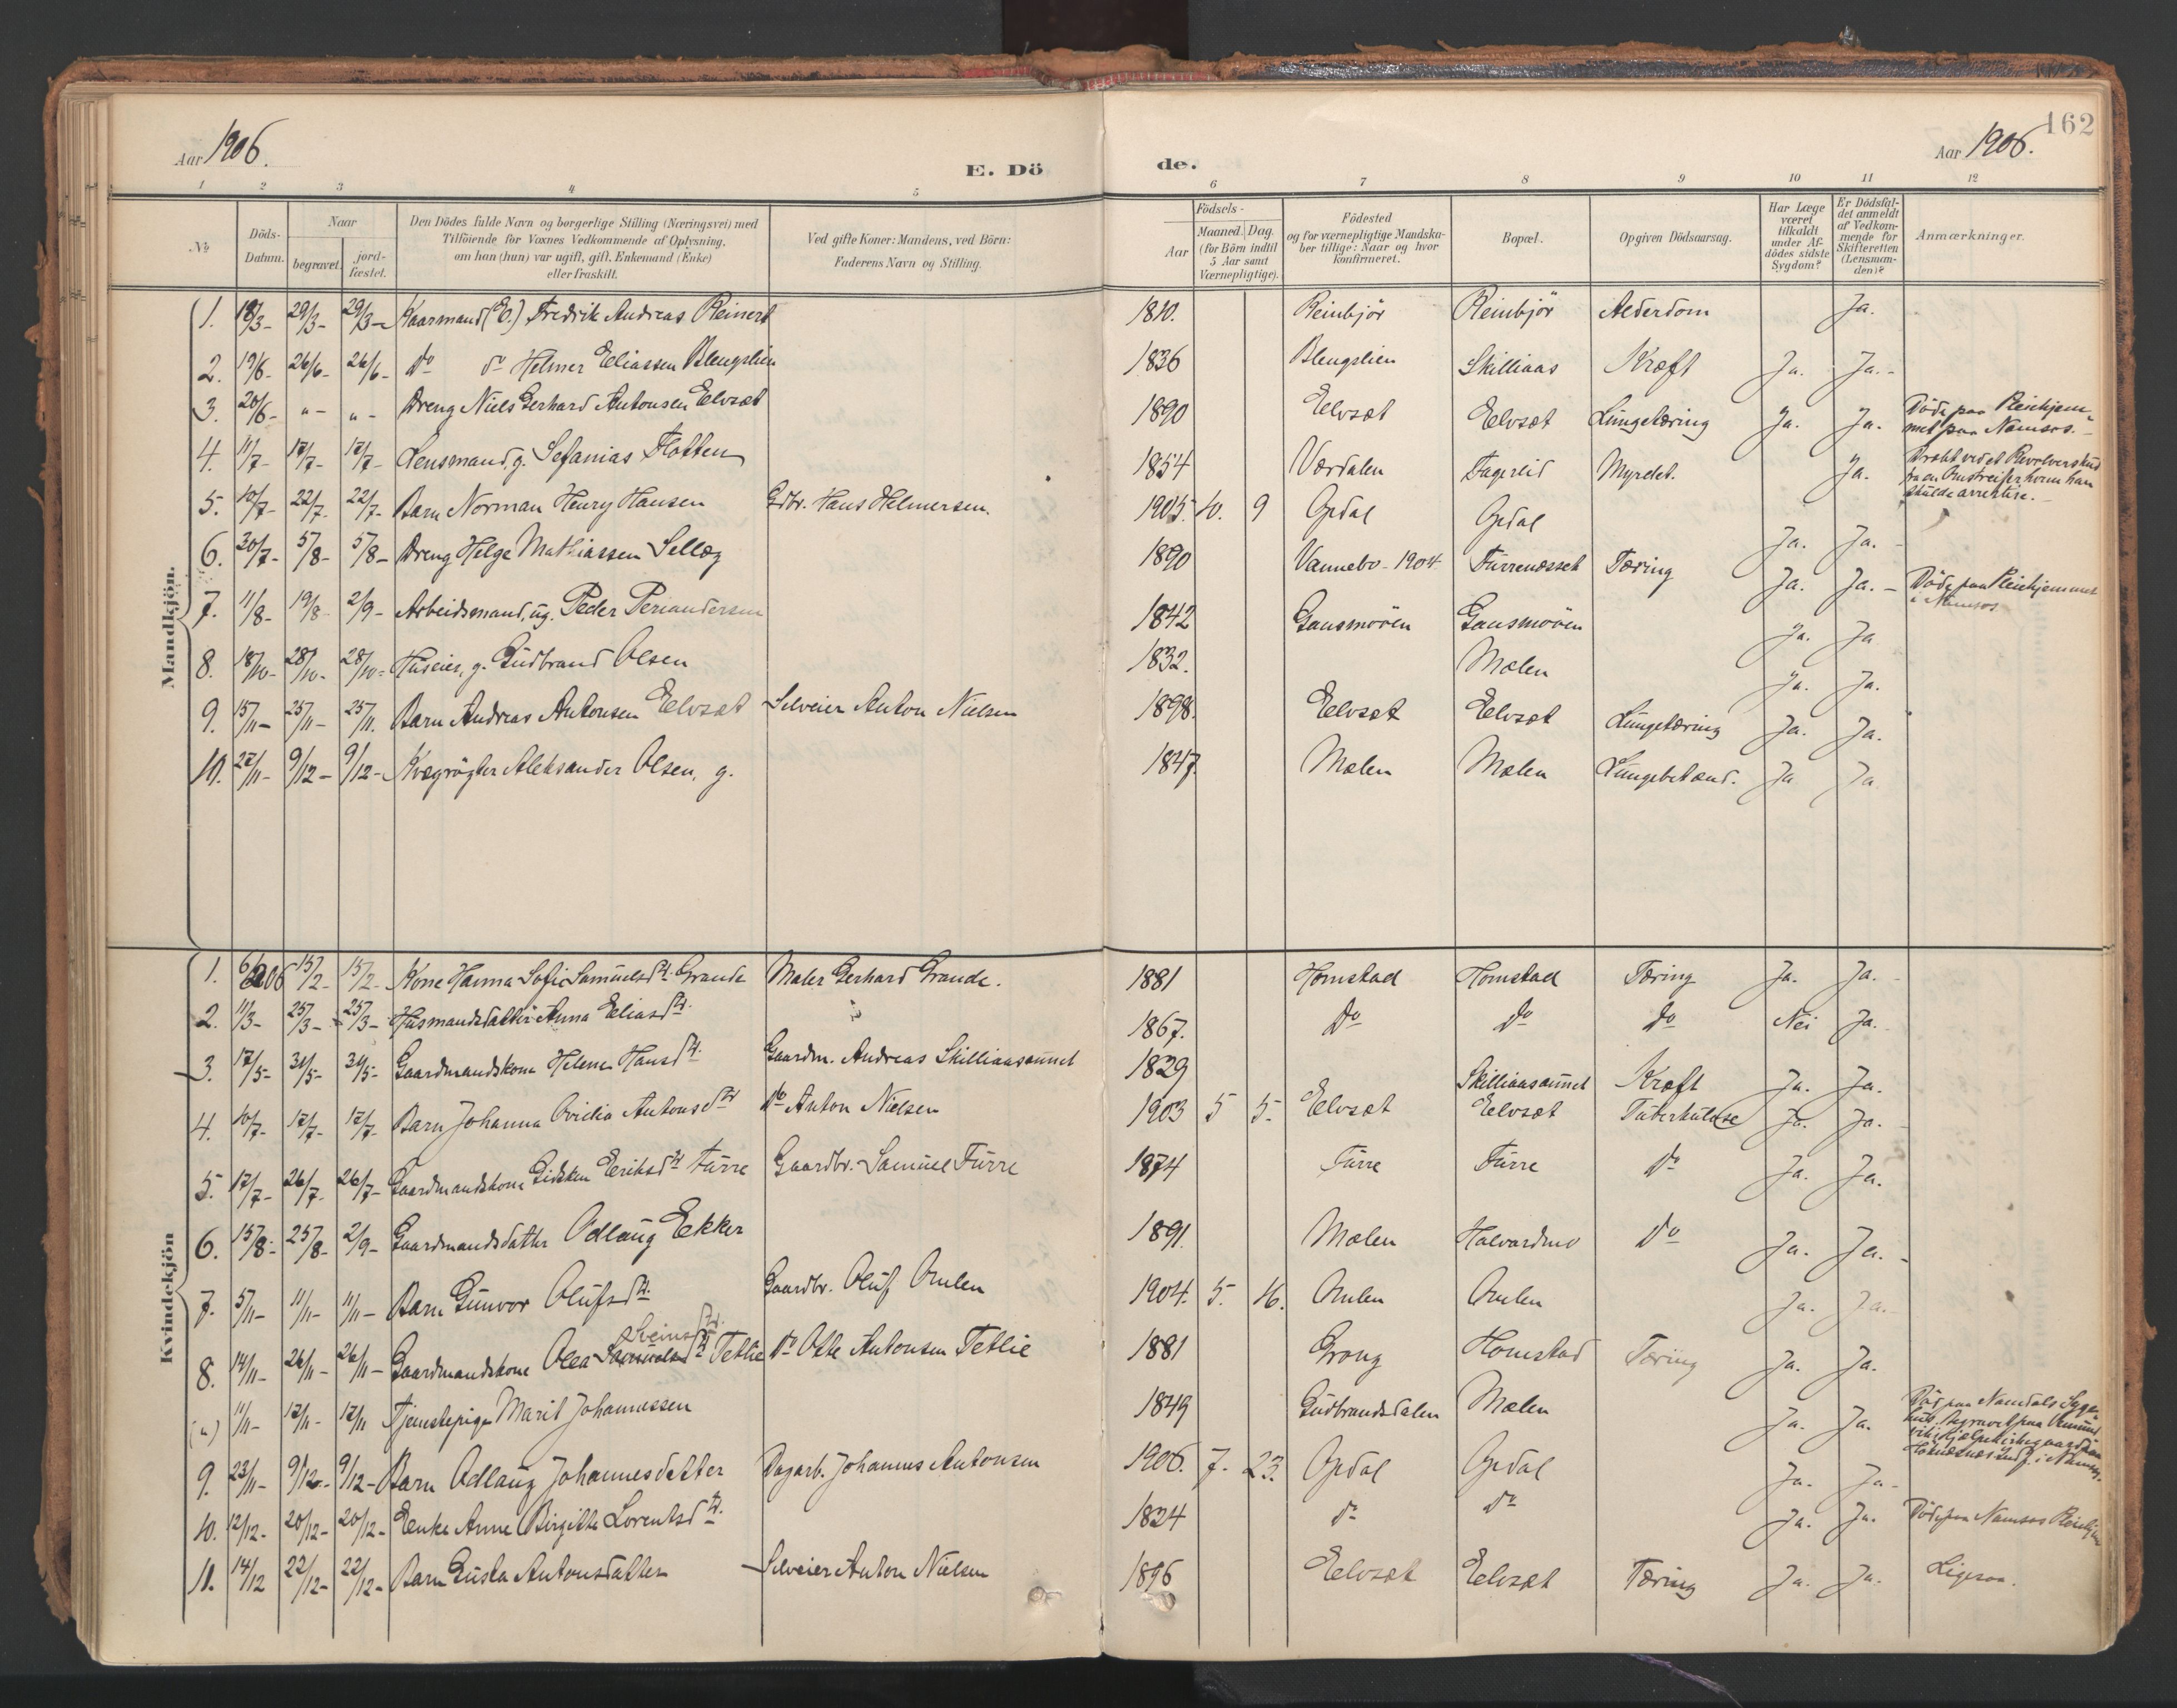 162
Aar 1906.
E. Dö de.
Aar 1906.
1 2 3 4 5 6 7 8 9 10 11 12
No
Döds-Datum.
Naar
begravet.
jord-fæstet.
Den Dödes fulde Navn og borgerlige Stilling (Næringsvei) med
Tilföiende for Voxnes Vedkommende af Oplysning,
om han (hun) var ugift, gift, Enkemand (Enke)
eller fraskilt.
Ved gifte Koner: Mandens, ved Börn:
Faderens Navn og Stilling.
Födsels-
Aar
Maaned. Dag.
(for Börn indtil
5 Aar samt
Værnepligtige).
Födested
og for værnepligtige Mandska-
ber tillige: Naar og hvor
konfirmeret.
Bopæl.
Opgiven Dödsaarsag.
Har Læge
været
tilkaldt
under Af-
dödes sidste
Sygdom?
Er Dödsfal-
det anmeldt
af Vedkom-
mende for
Skifteretten
(Lensman-
den)?
Anmærkninger.
Mandkjön.
1. 18/3- 29/3- 29/3- Kaarmand (E.) Fredrik Andreas Reinert 1810. Reinbjör Reinbjör Alderdom Ja.
2. 19/6- 26/6- 26/6- do do Helmer Eliassen Blengslien 1836 Blengslien Skilliaas Kræft Ja. Ja.-
3. 20/6- "- "- Dreng Niels Gerhard Antonsen Elvsæt 1890 Elvsæt Elvsæt Lungetæring Ja. Ja. Döde paa Pleiehjem-
met paa Namsos.-
4. 11/7- 17/7- 17/7- Lensmand, g. Sefanias Flotten 1854 Værdalen Fagereid Myrdet. Ja. Dræbt ved et Revolverskud
fra en Omstreifer hvem han
skulde arrestere.-
5. 10/7- 22/7- 22/7- Barn Norman Henry Hansen Gdbr. Hans Helmersen. 1905. 10. 9 Opdal Opdal Ja. Ja.-
6. 30/7- 5/8- 5/8- Dreng Helge Mathiassen Sellæg 1890 Vannebo-1904 Furrenæsset Tæring Ja. Ja.- Döde paa Pleiehjemmet
i Namsos
7. 11/8- 19/8- 2/9- Arbeidsmand, ug. Peder Periandersen 1842 Gansmoöen Gansmoöen Ja. Ja
8. 18/10- 28/10- 28/10- Huseier, g. Gudbrand Olsen 1832. Mælen Ja. Ja.
9. 15/11- 25/11- 25/11. Barn Andreas Antonsen Elvsæt Selveier Anton Nielsen 1898. Elvsæt Elvsæt Lungetæring Ja. Ja.
10. 27/11- 9/12- 9/12- Kvægrögter Aleksander Olsen, g. 1847. Mælen Mælen Lungebetænd. Ja Ja
Kvindekjön
1. 6/2 06 15/2- 15/2- Kone Hanna Sofie Samuelsdtr. Grande Maler Gerhard Grande. 1881 Homstad Homstad Tæring Ja. Ja.-
2. 11/3- 25/3- 25/3- Husmandsdatter Anna Eliasdtr. 1867. do do do Nei Ja.
3. 17/5- 31/5- 31/5- Gaardmandskone Helene Hansdtr. Gaardm. Andreas Skilliaasaunet 1829 Skilliaasaunet Kræft Ja. Ja.
4. 10/7- 17/7- 17/7- Barn Johanna Ovidia Antonsdtr do Anton Nielsen 1903 5 5. Elvsæt Elvsæt Tuberkulose Ja. Ja.
5. 17/7- 26/7- 26/7- Gaardmandskone Gidsken Eriksdtr Furre Gaardbr. Samuel Furre 1874 Furre Furre do Ja. Ja.
6. 15/8- 25/8- 2/9- Gaardmandsdatter Odlaug Ekker 1891. Mælen Halvardmo do Ja. Ja.-
7. 5/11- 11/11- 11/11- Barn Gunvor Olufsdtr. Gaardbr. Oluf Omlen 1904. 5. 16. Omlen Omlen Ja. Ja.-
Sveinsdtr.
8. 14/11- 26/11- 26/11- Gaardmandskone Olea Samuelsdtr Tetlie do Otte Antonsen Tetlie 1881 Grong Homstad Tæring Ja. Ja.
(a) 11/11- 17/11- 17/11 Tjenestepige Marit Johannessen 1849 Gudbrandsdalen Mælen Ja. Ja. Död paa Namdals Syge-
hus. Begravet paa
Hjælpekirkegaard paa
i Namsos.
9. 23/11- 9/12- 9/12- Barn Odlaug Johannesdatter Dagarb. Johannes Antonsen 1906. 7. 23. Opdal Opdal Ja. Ja-
10. 12/12- 20/12- 20/12- Enke Anne Birgitte Lorentsdtr. 1824 do do Ja. Ja. Död paa Namsos Pleiehjem
11. 14/12 22/12- 22/12- Barn Gusta Antonsdatter Selveier Anton Nielsen 1896 Elvsæt Elvsæt Tæring Ja. Ja. Ligesaa.